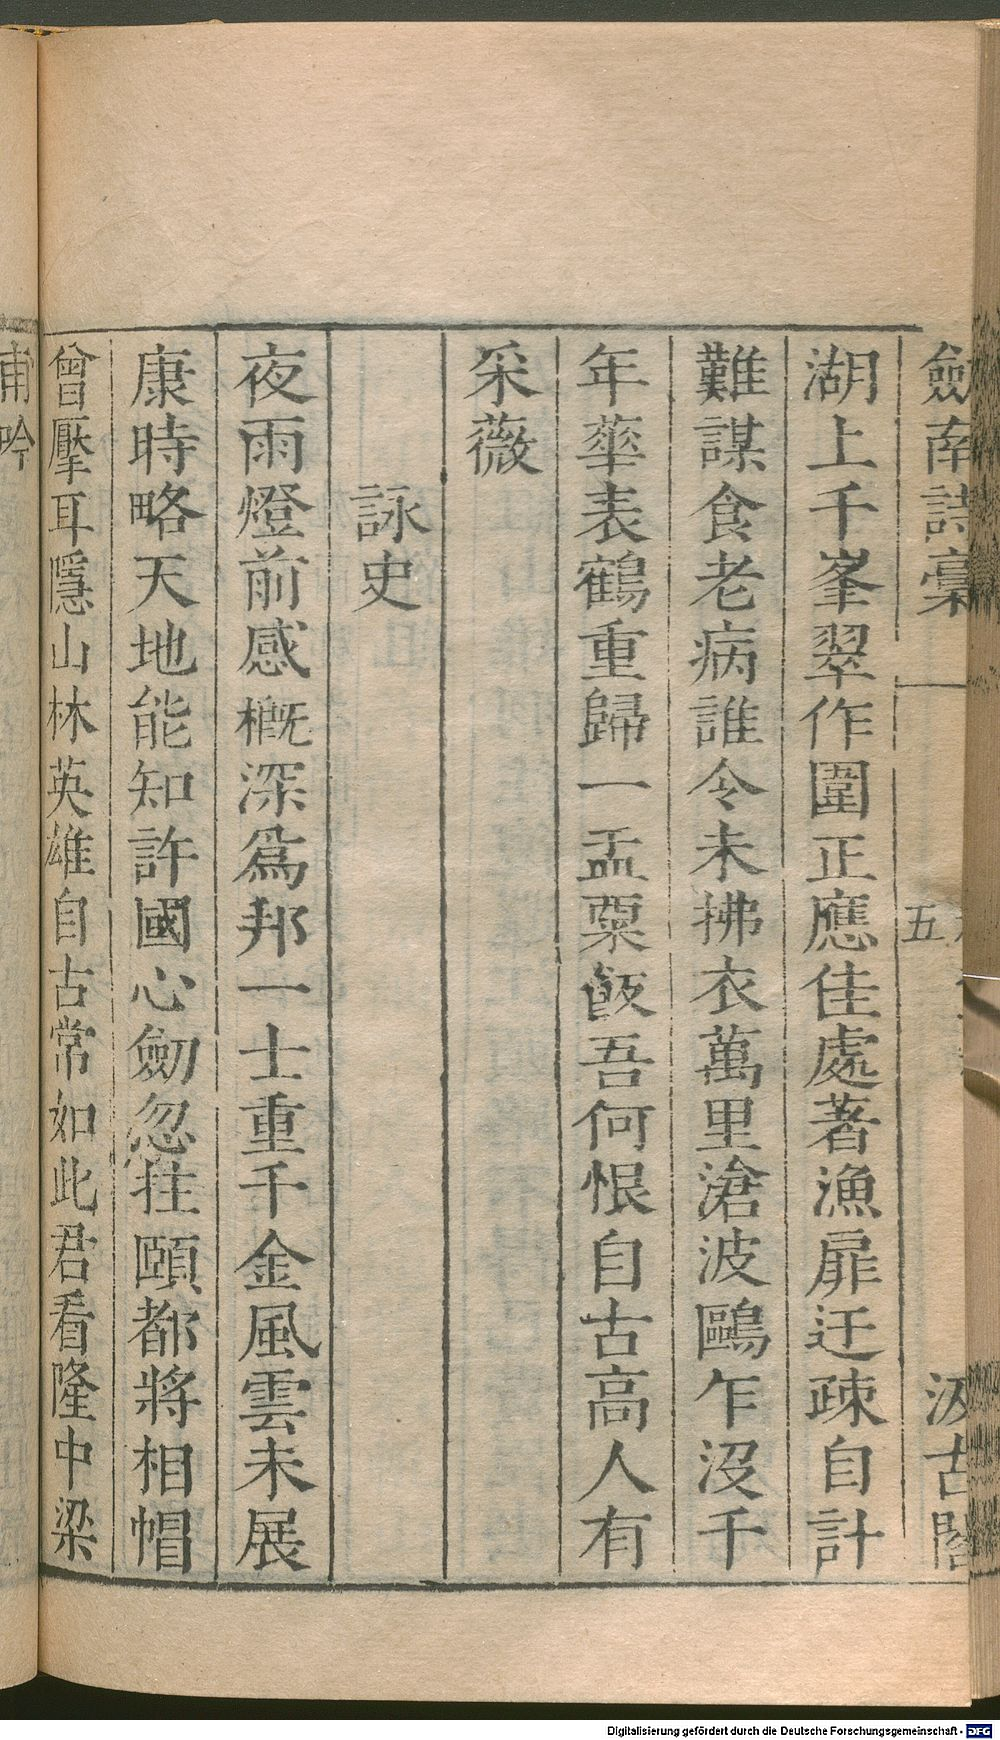 劒南詩稾
五
汲古閣
湖上千峯翠作圍正應佳處著漁扉迂疎自計
難謀食老病誰令未拂衣萬里滄波鷗乍沒千
年華表鶴重歸一盂粟飯吾何恨自古高人有
采薇
詠史
夜雨燈前感槪深爲邦一士重千金風雲未展
康時略天地能知許國心劒忽拄頤都將相帽
曾壓耳隱山林英雄自古常如此君看隆中梁
甫吟
Digitalisierung gefördert durch die Deutsche Forschungsgemeinschaft - DFG